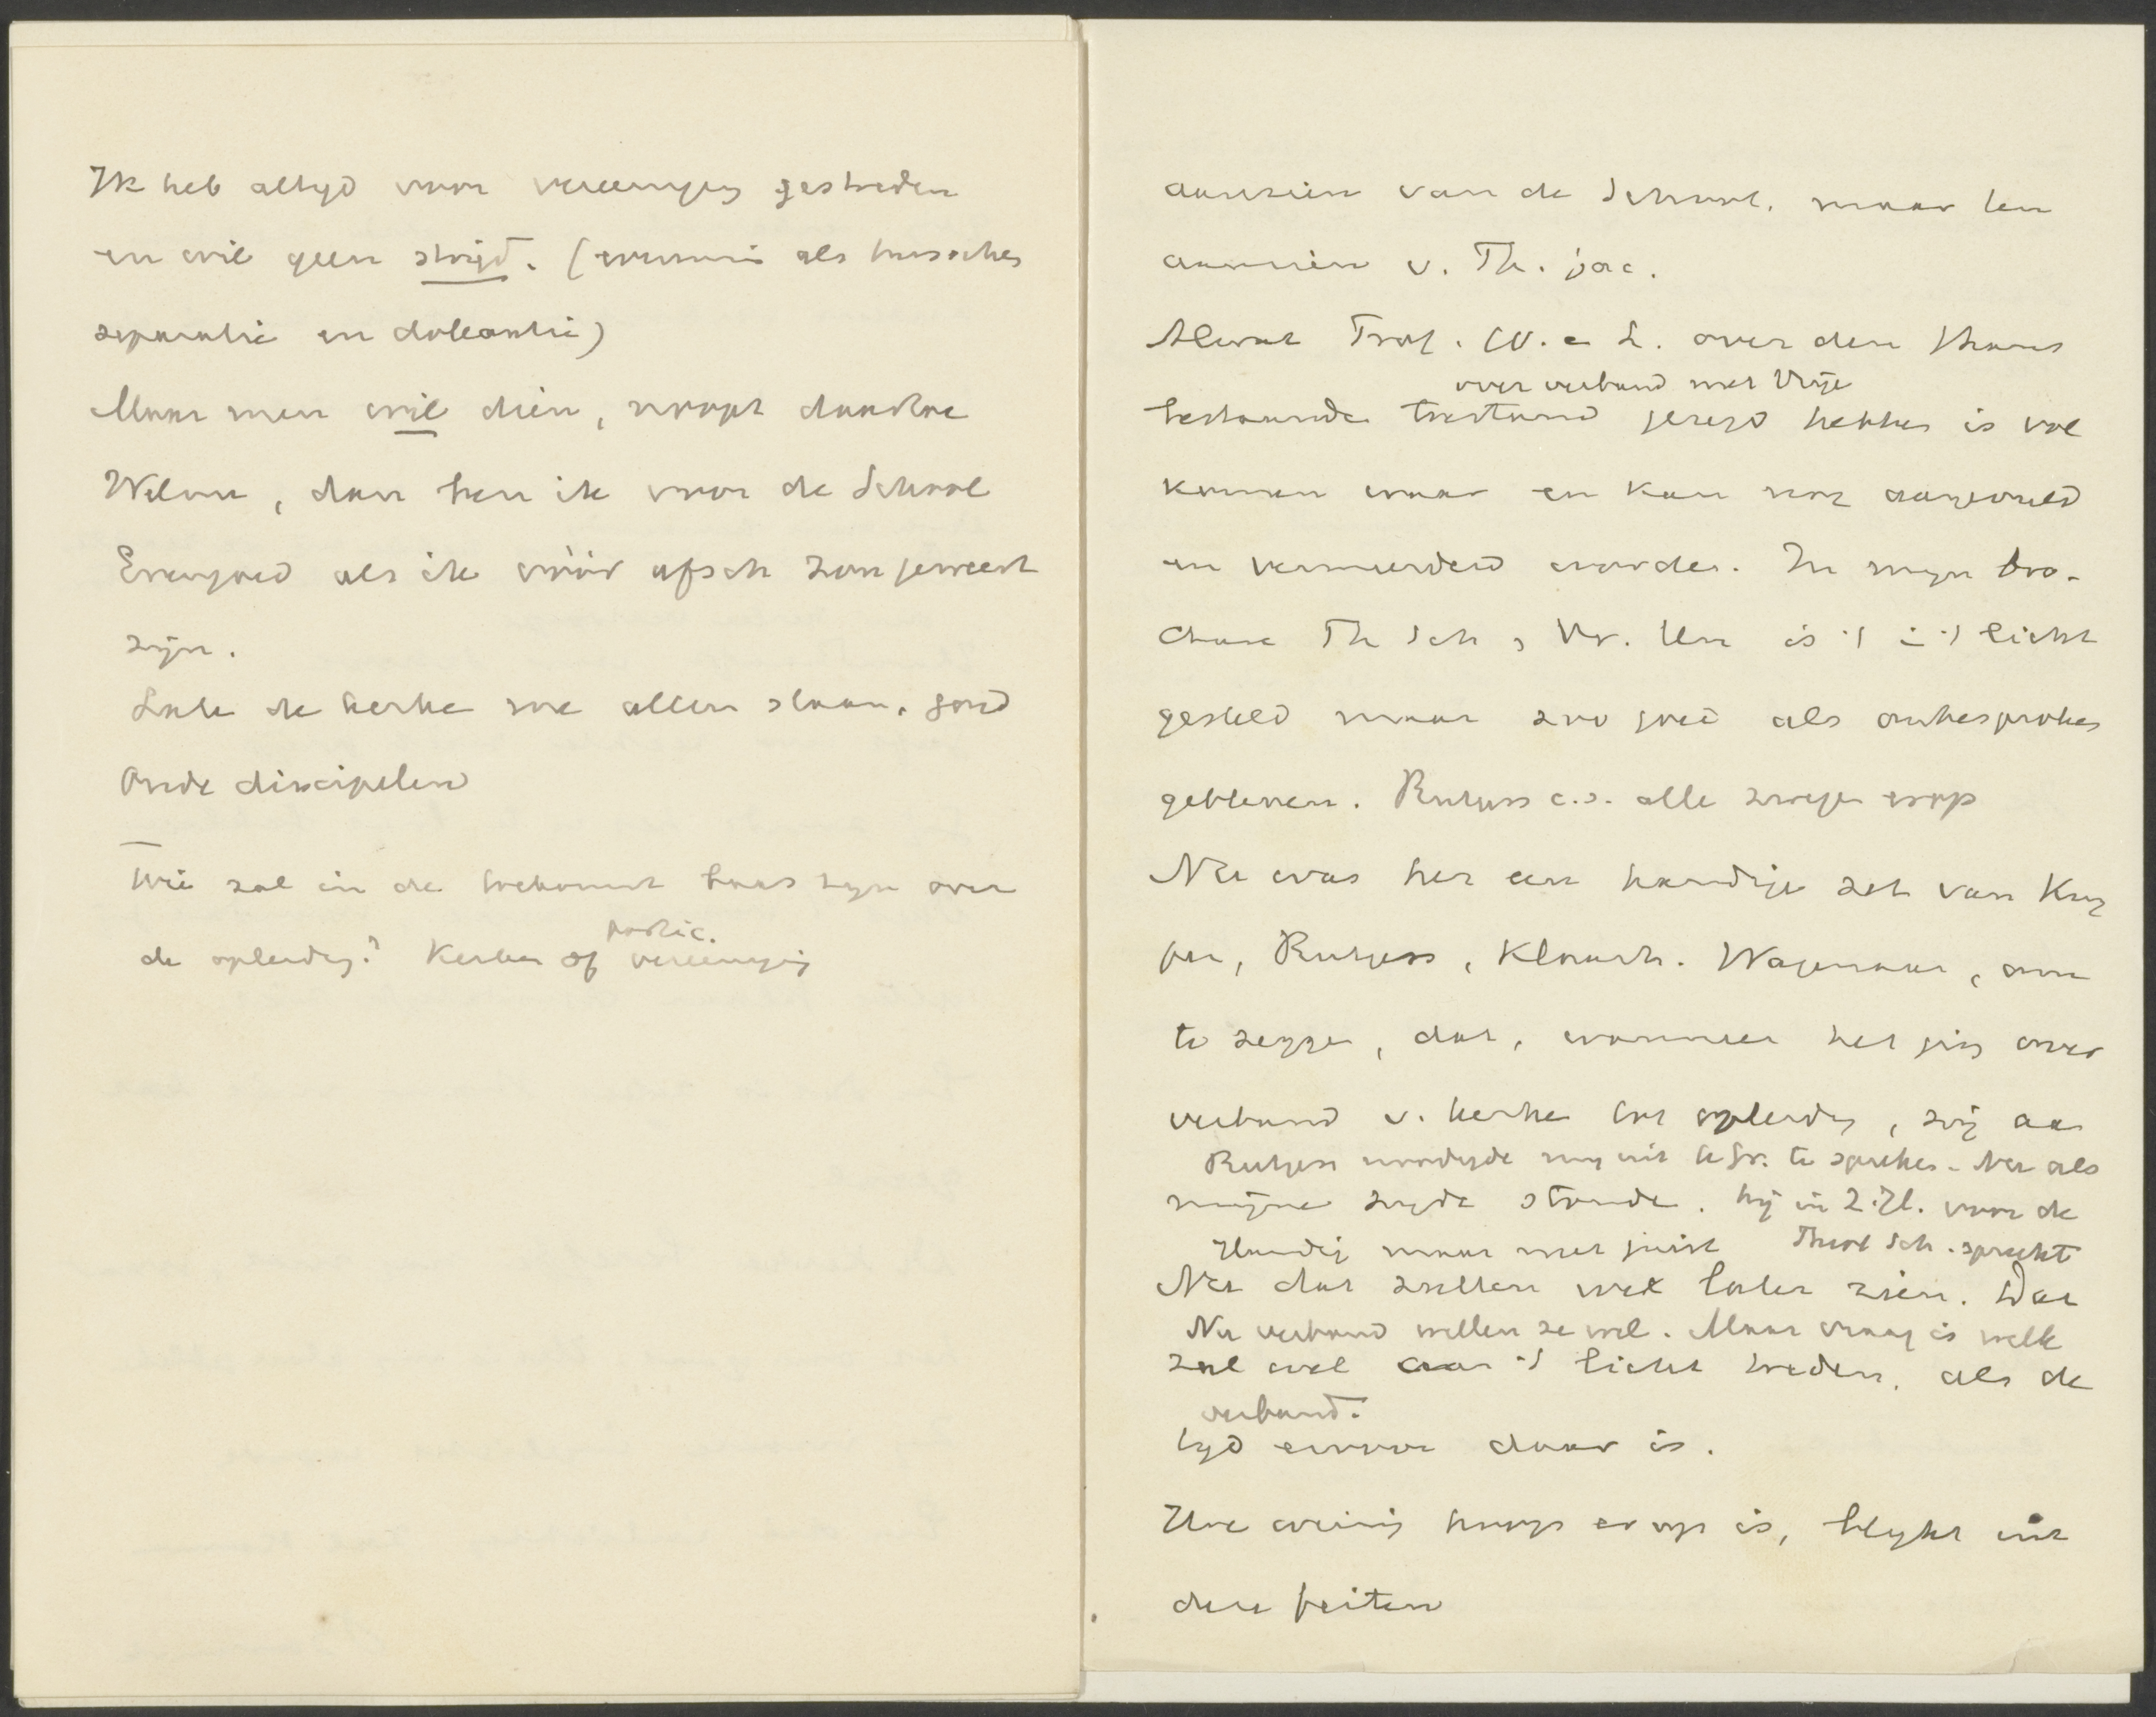 Ik heb altijd voor vereeniging gestreden
en wil geen strijd. (evenmin als tusschen
separatie en doleantie)
Maar men wil dien, noopt daartoe
Welnu, dan ben ik voor de School
Evengoed als ik vóór afsch zou geweest
zijn.
Late de kerke me allen slaan, goed
Oude discipelen
Wie zal in de toekomst baas zijn over
de opleiding? Kerken of partic. vereeniging
aanzien van de School, maar ten
aanzien v. Th. fac.
Alwat Prof. W. e L. over den thans
over verband met Vrije
bestaande toestand gezegd hebben is vol
komen waar en kan nog aangevuld
en vermeerderd worden. In mijn bro-
chure Th Sch & Vr. Un is 't in 't licht
gesteld maar zoo goed als onbesproken
gebleven. Rutgers c.s. alle zwegen erop
Nu was het een handige zet van Kuy
per, Rutgers, Klaarh. Wagenaar, om
te zeggen, dat, wanneer het ging over
verband v. kerke tot opleiding, zij aan
Rutgers noodigde mij uit te Gr. te spreken. Net als
mijne zijde stonden. hij in Z.Hl. voor de
Handig maar niet juist Theol Sch. spreekt
Nu dat zullen wel later zien. Dat
Nu verband willen ze wel. Maar vraag is welk
zal wel aan 't licht treden, als de
verband.
tijd ervoor daar is.
Hoe weinig hoop er op is, blijkt uit
deze feiten